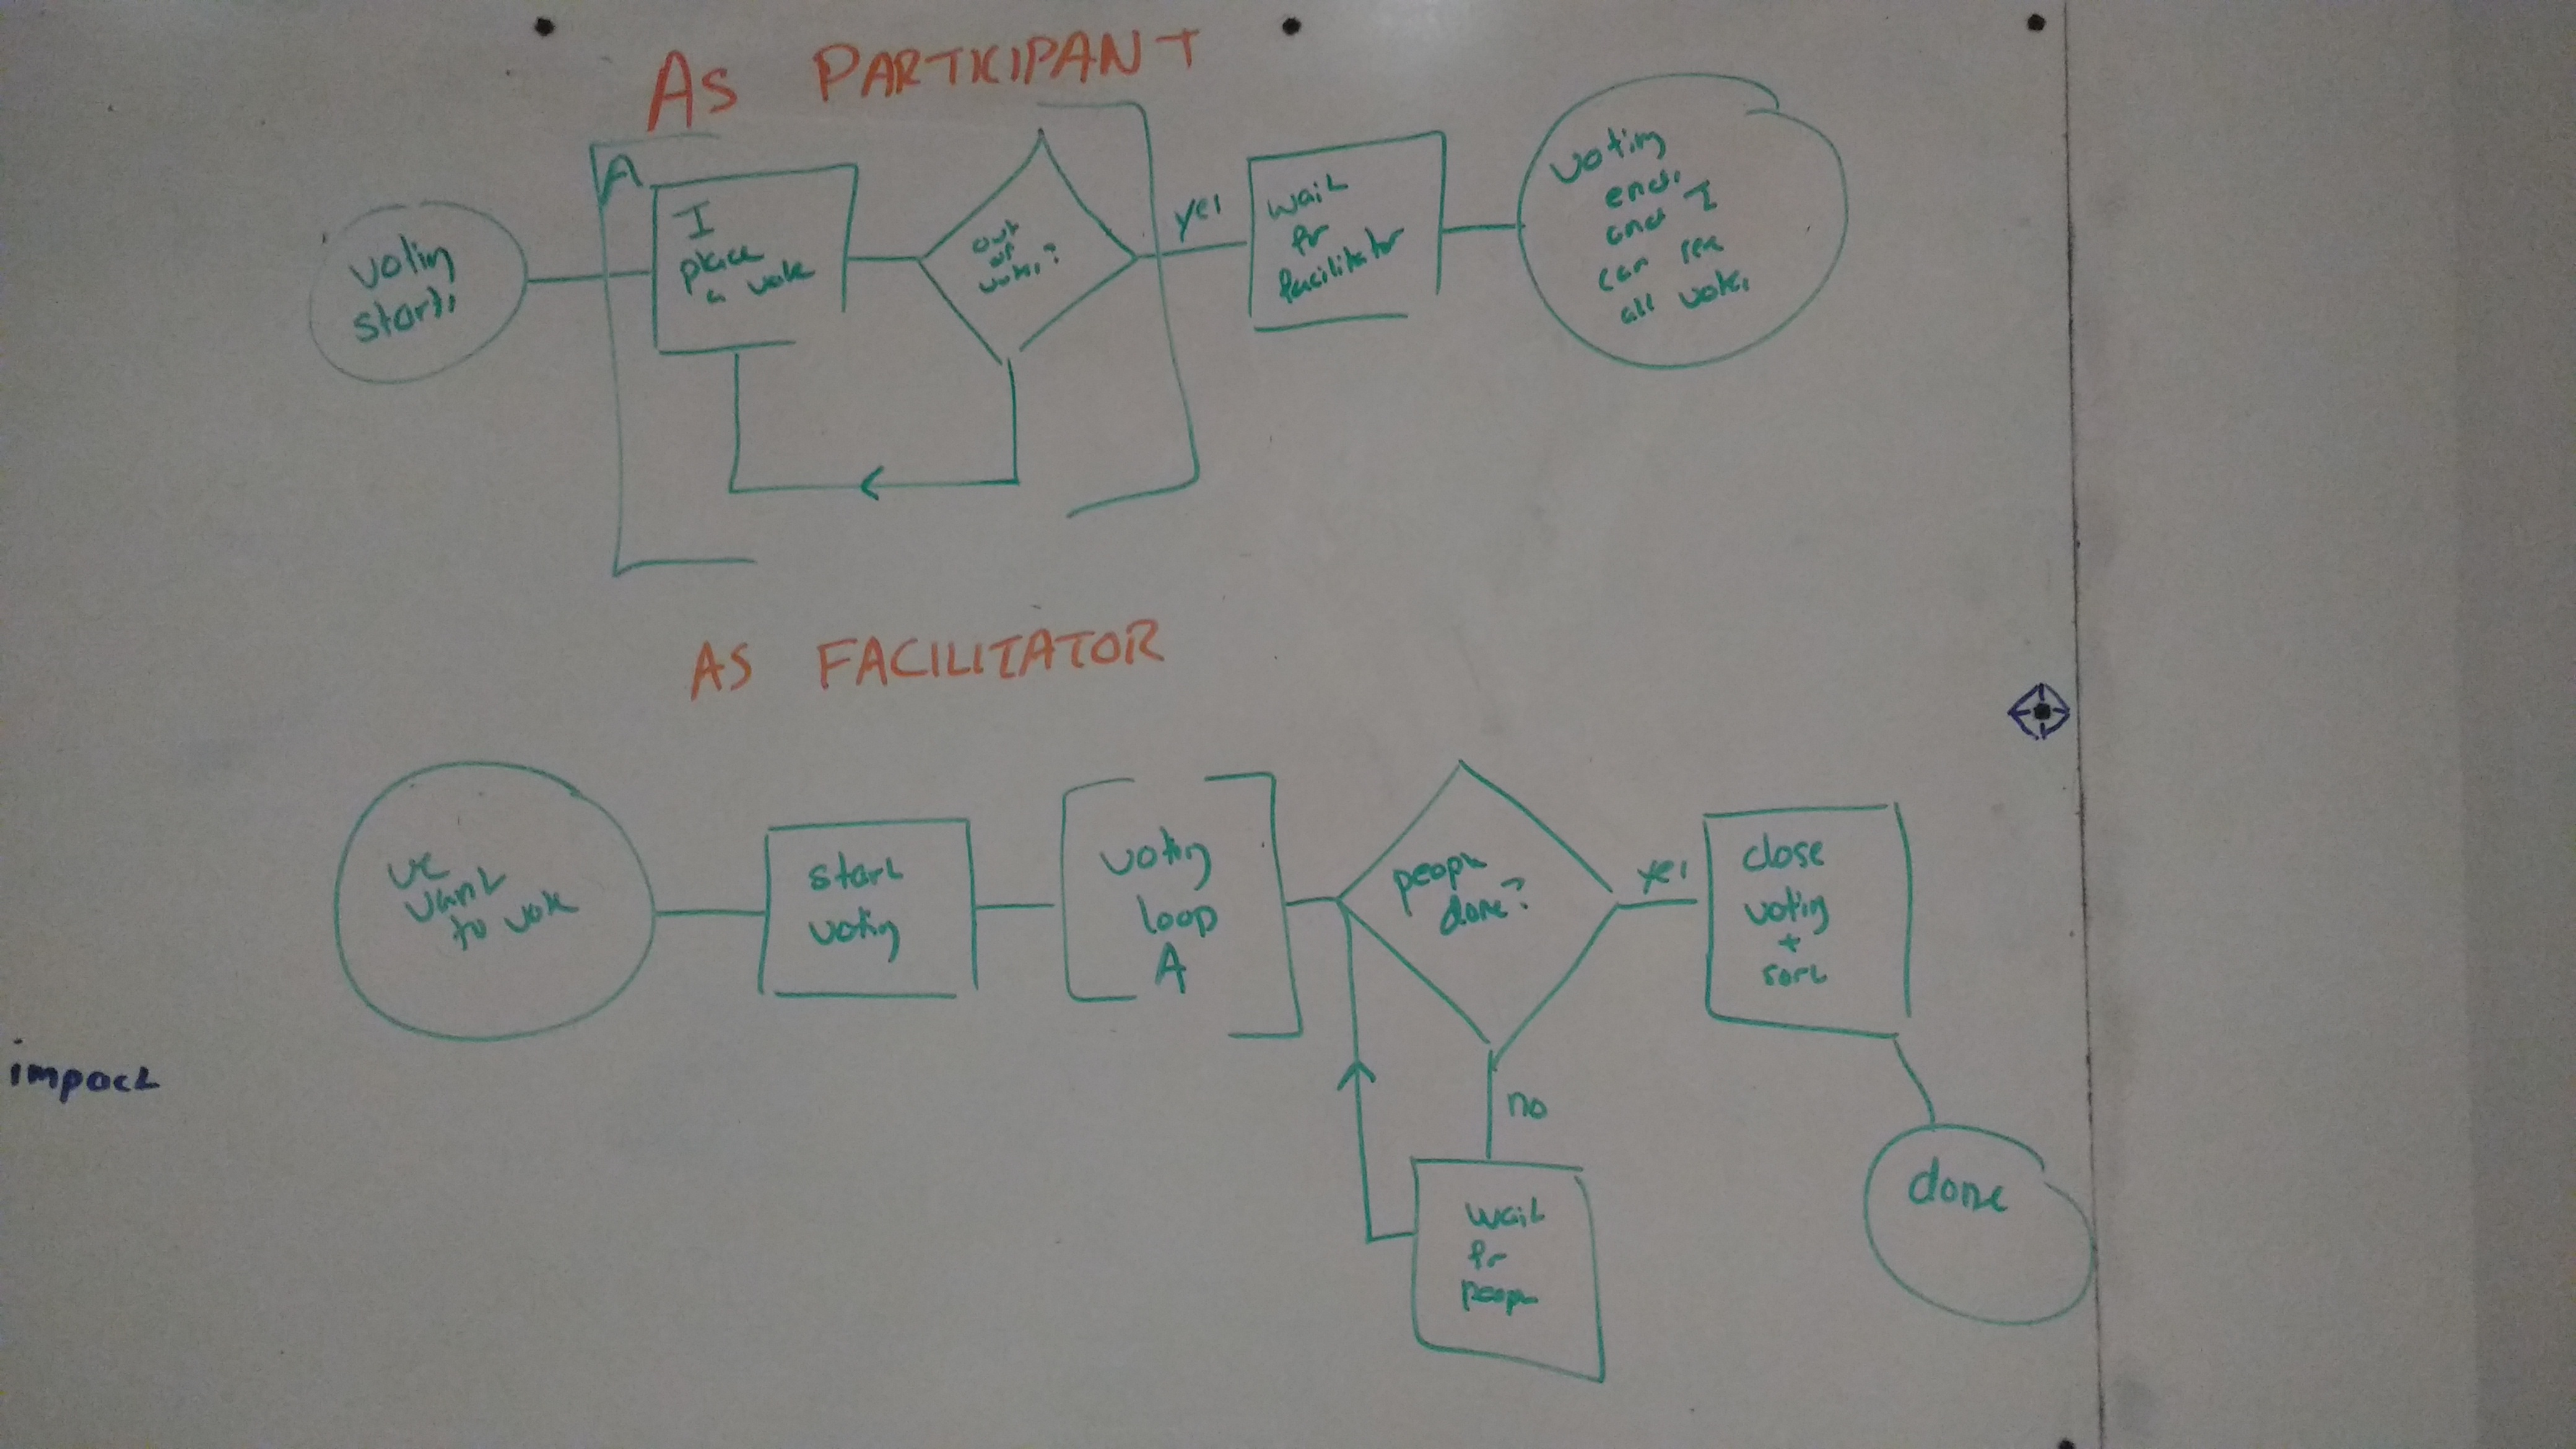 AS PARTICIPANT
voting
starts
A
I
place
a vote
out
of
votes?
yes
wait
for
facilitator
voting
ends
and I
can see
all votes
AS FACILITATOR
we
want
to vote
start
voting
voting
loop
A
people
done?
yes
close
voting
+
sort
no
wait
for
people
done
impact